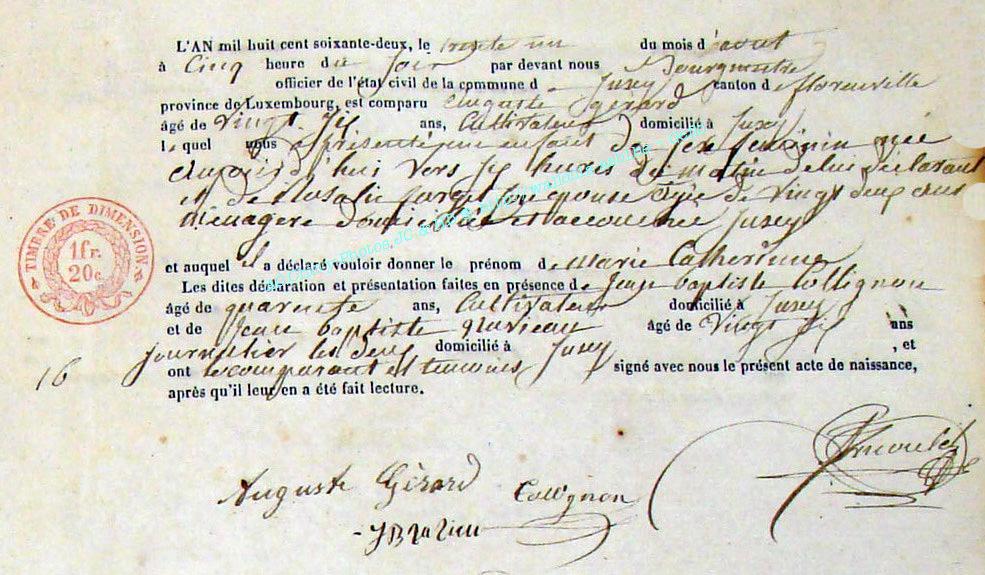 L'AN mil huit cent soixante-deux, le trente un du mois d'août
à Cinq heure du soir par devant nous Bourgmestre
officier de l'état civil de la commune d Jusey canton de florenville
province de Luxembourg, est comparu Auguste Gérard
âgé de Vingt six ans, Cultivateur domicilié à Jusey
le quel nous a présenté un enfant de sexe féminin née
Aujourd'hui vers six heures du matin de lui déclarant
et de Rosalie son épouse agée de vingt deux ans
Menagère domiciliée et accouchée Jusey
et auquel il a déclaré vouloir donner le prénom de Marie Catherinne
Les dites déclaration et présentation faites en présence de Jean baptiste Collignon
âgé de quarente ans, Cultivateur domicilié à Jusey
et de Jean baptiste âgé de Vingt six ans
Journalier les deux domicilié à Jusey , et
ont le comparant et temoins signé avec nous le présent acte de naissance,
après qu'il leur en a été fait lecture.
16
TIMBRE DE DIMENSION
1 fr.
20 c.
Auguste Gérard Collignon